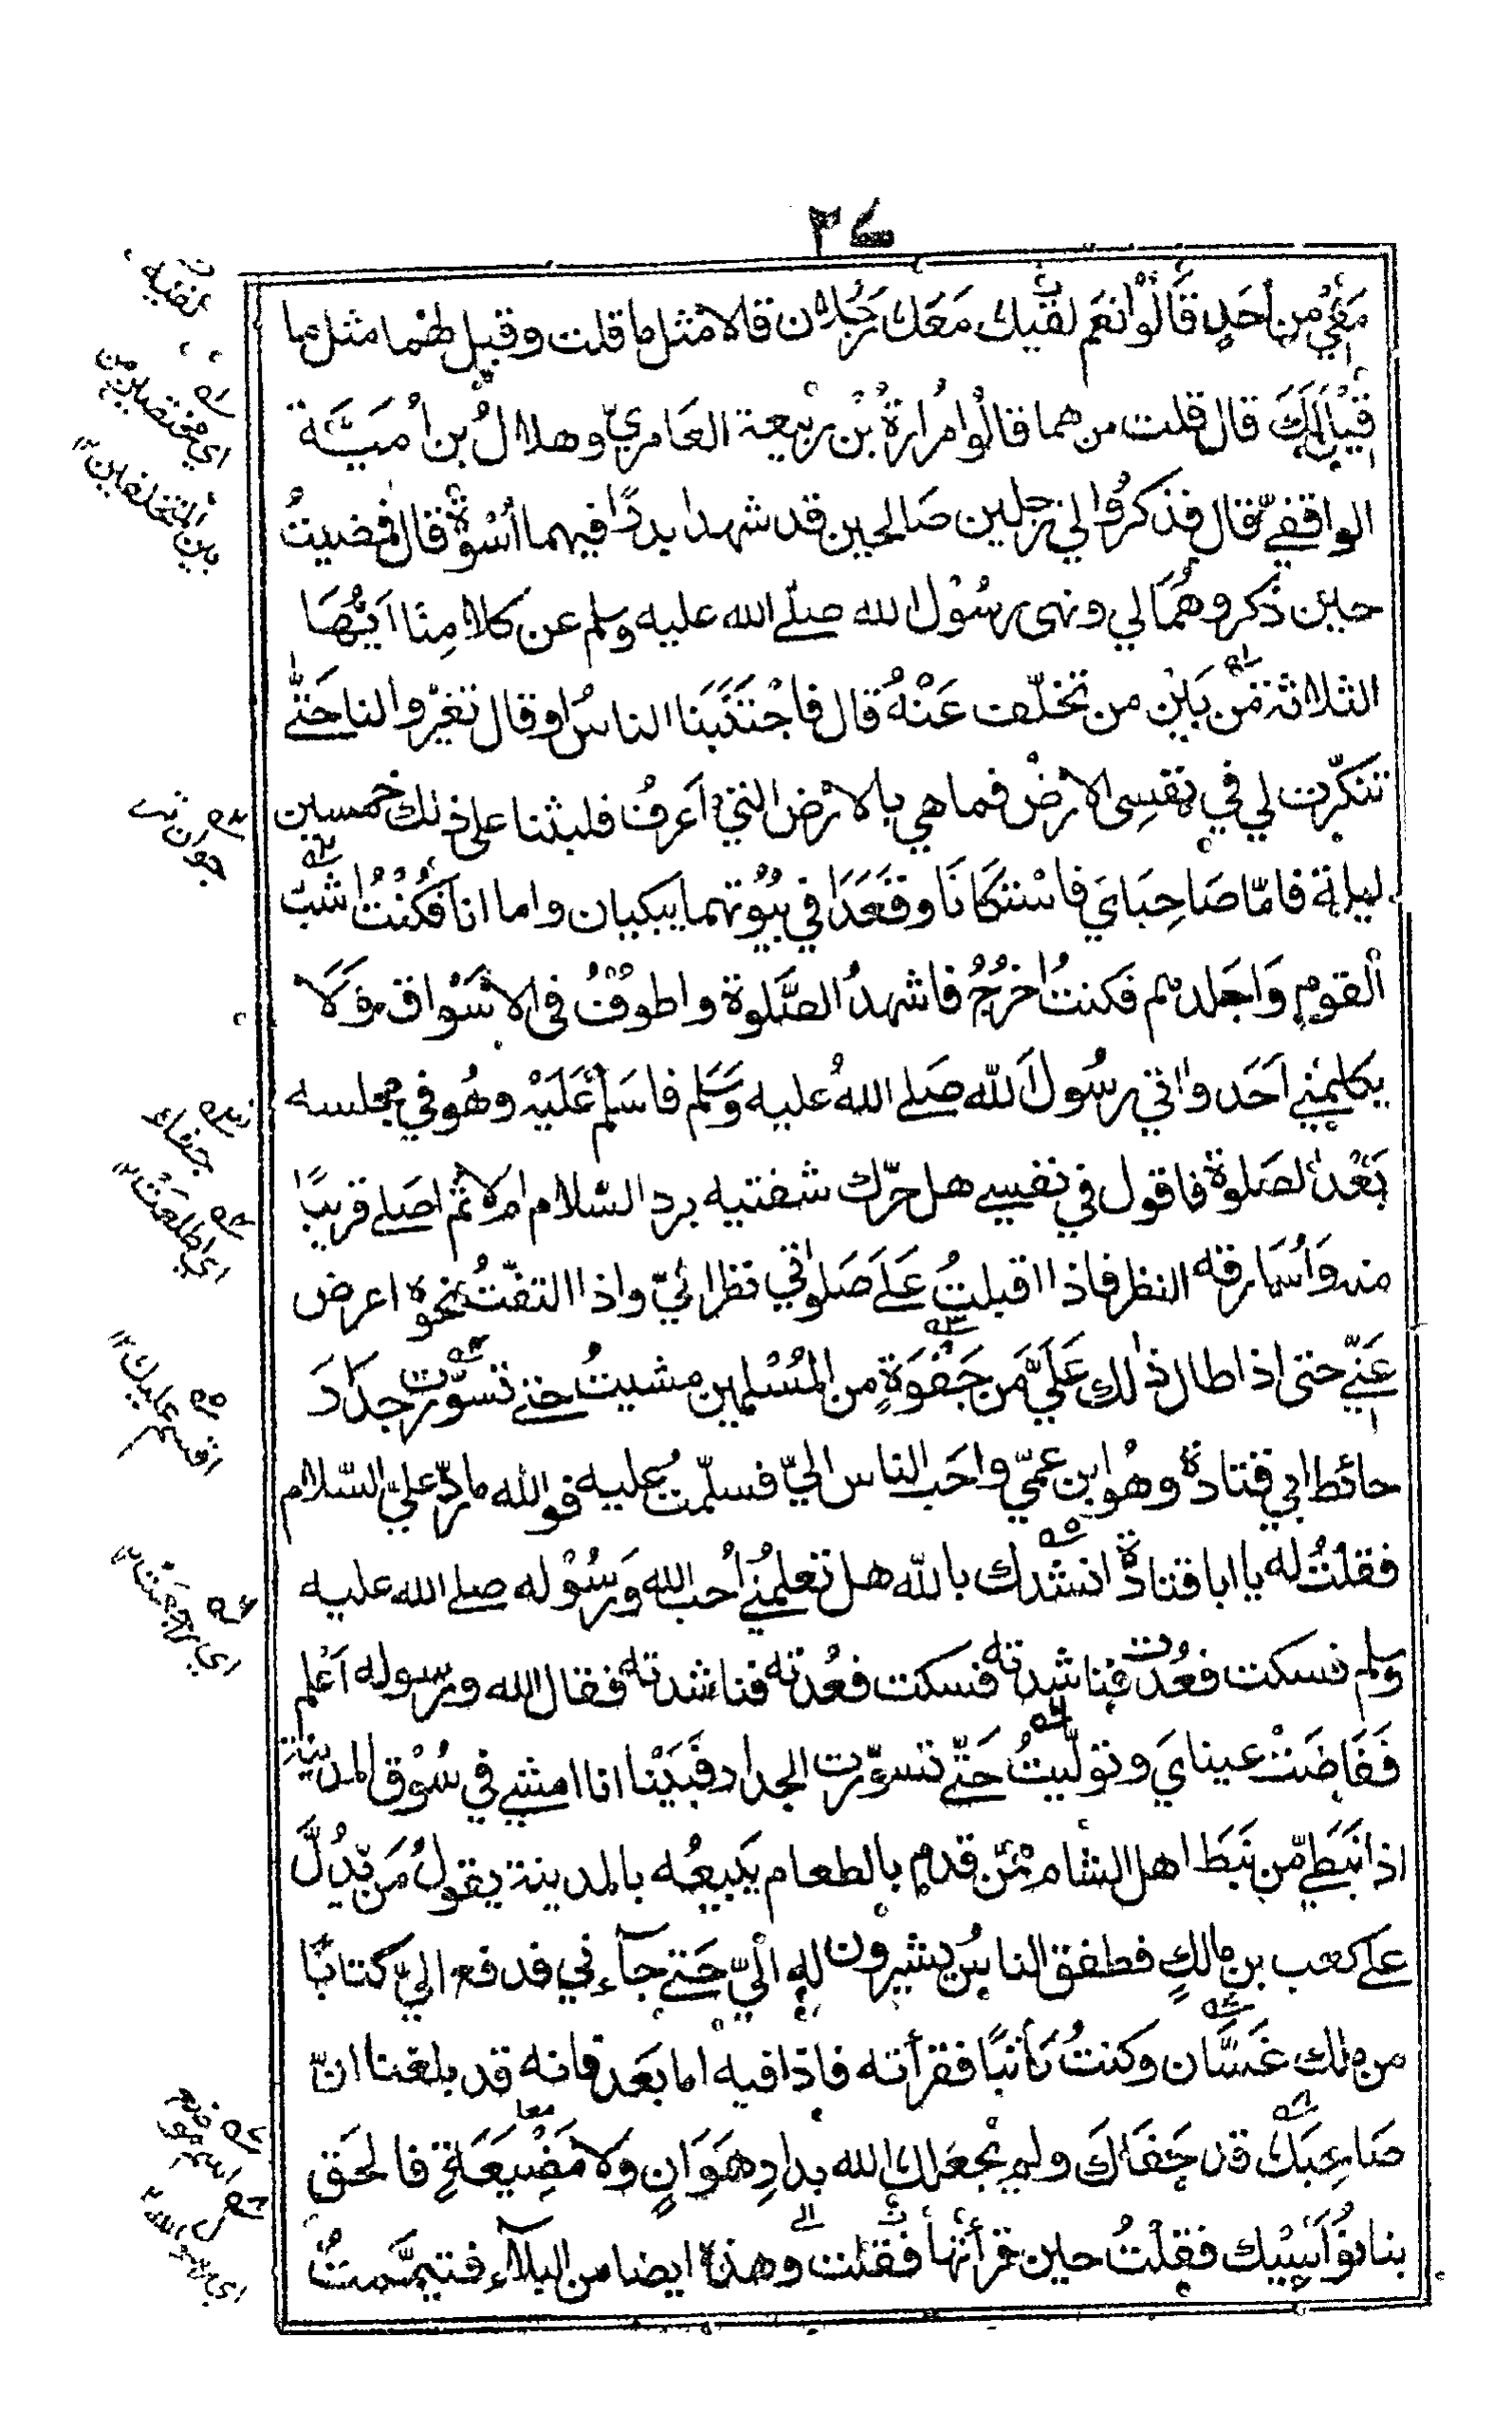 ٣٧
مَعِيَ مِن أَحَدٍ قَالُوْا نعَم لقيك مَعَك رَجُلان قالا مثل ما قلت وقيل لهما مثل ما
قِيْلَ لَكَ قال قلت من هما قالُوا مُرارةُ بْن رَبيعة العَامريّ وهلالُ بن أُميَّة
الواقفيّ قال فذكرُوا لي رجلين صَالحين قد شهدا بدرًا فيهما أُسْوة قال فمضيتُ
حين ذكروهُمَا لي ونهى رسُوْل الله صلّى الله عليه وسلم عن كلامِنَا ايّهَا
الثلاثة مِن بَيْن من تخلّف عَنْهُ قال فاجْتَنَبَنا الناسُ او قال تغيّروا لنا حَتّٰى
تنكّرت لي في نفسِى الارضْ فما هي بالارْض التي اَعرفُ فلبثنا على ذلك خمسين
ليلة فامّا صَاحِبَايَ فاسْتكَانَا وقَعَدَا في بُيُوْتهما يبكيان واما انا فكُنْتُ اشَبَّ
الْقومِ وَاجَلدهم فكنتُ اخرُجُ فاشهدُ الصَّلوة واطوْفُ فى الاسْوَاق وَلَا
يكلمُنِي اَحَد واٰتي رسُولَ اللّه صَلى اللهُ عليه وَسَلم فاسَلِّم عَلَيْه وهُو في مجلسه
بَعْدَ الصَلوة فاقول في نفسي هل حرّك شفتيه برد السّلام ام لا ثم اصَلي قريبًا
منه وَاُسَارقه النظر فاذا اقبلتُ عَلَى صَلوٰتي نظر الَيّ واذا التفتُّ نحوه اعرض
عَنّي حتى اذا طال ذٰلك عَلَيَّ مَن جَفْوَةٍ من المُسْلمين مشيتُ حتى تسوّرت جدَادَ
حائط ابي قتادة وهُو ابن عمّي واحَب الناس اليّ فسلّمتُ عليه فو الله ما ردّ عليّ السّلام
فقلتُ له يا ابا قتادة انشدك باللّه هل تعلمُني اُحب الله وَرسُوْله صلى الله عليه
وسلم فسكت فعُدت فناشدته فسكت فعُدته فناشدته فقال الله ورسوله اَعْلم
فَفَاضَتْ عيناي وتولّيتُ حَتّى تسوّرت الجدار فبَيْنا انا امشي في سُوْق المدينة
اذا نبَطيّ مّن نبَط اهل الشام ممّن قدم بالطعام يَبيعُه بالمدينة يقولُ مَن يّدُلُّ
على كعب بن مالكٍ فطفق الناسُ يشيرون له اليّ حَتى جآءني فدفع اليّ كتابًا
من ملك غَسَّان وكنتُ كَاتبًا فقرأته فاذا فيه اما بعَد فانه قد بلغنا انّ
صَاحِبَكَ قد جَفَاكَ ولم يجعَلك الله بدارِ هَوَانٍ وَلا مَضْيَعَةٍ فالحَق
بنا نُوَاسِيْك فقلْتُ حين قرأتها فقلت وهذه ايضا من البلآء فتيمَّمتُ
اي مختصين من
بين المتخلفين
جوان تر
جفاء
اي اطلعت
اقسم عليك
اي رجعت